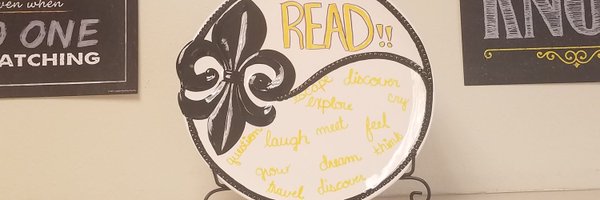 even when
O ONE
WATCHING
READ!!
escape discover
explore cry
question laugh meet feel
grow dream think
travel discover
KNO